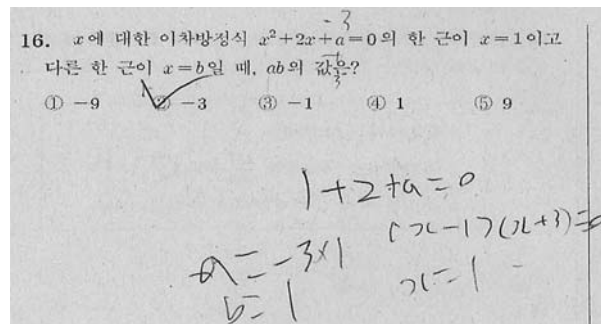 -3
16. x에 대한 이차방정식 x²+2x+a=0의 한 근이 x=1이고
다른 한 근이 x=b일 때, ab의 값은?
① -9 ② -3 ③ -1 ④ 1 ⑤ 9
1+2+a=0
(x-1)(x+3)=0
a=-3×1
x=1
b=1